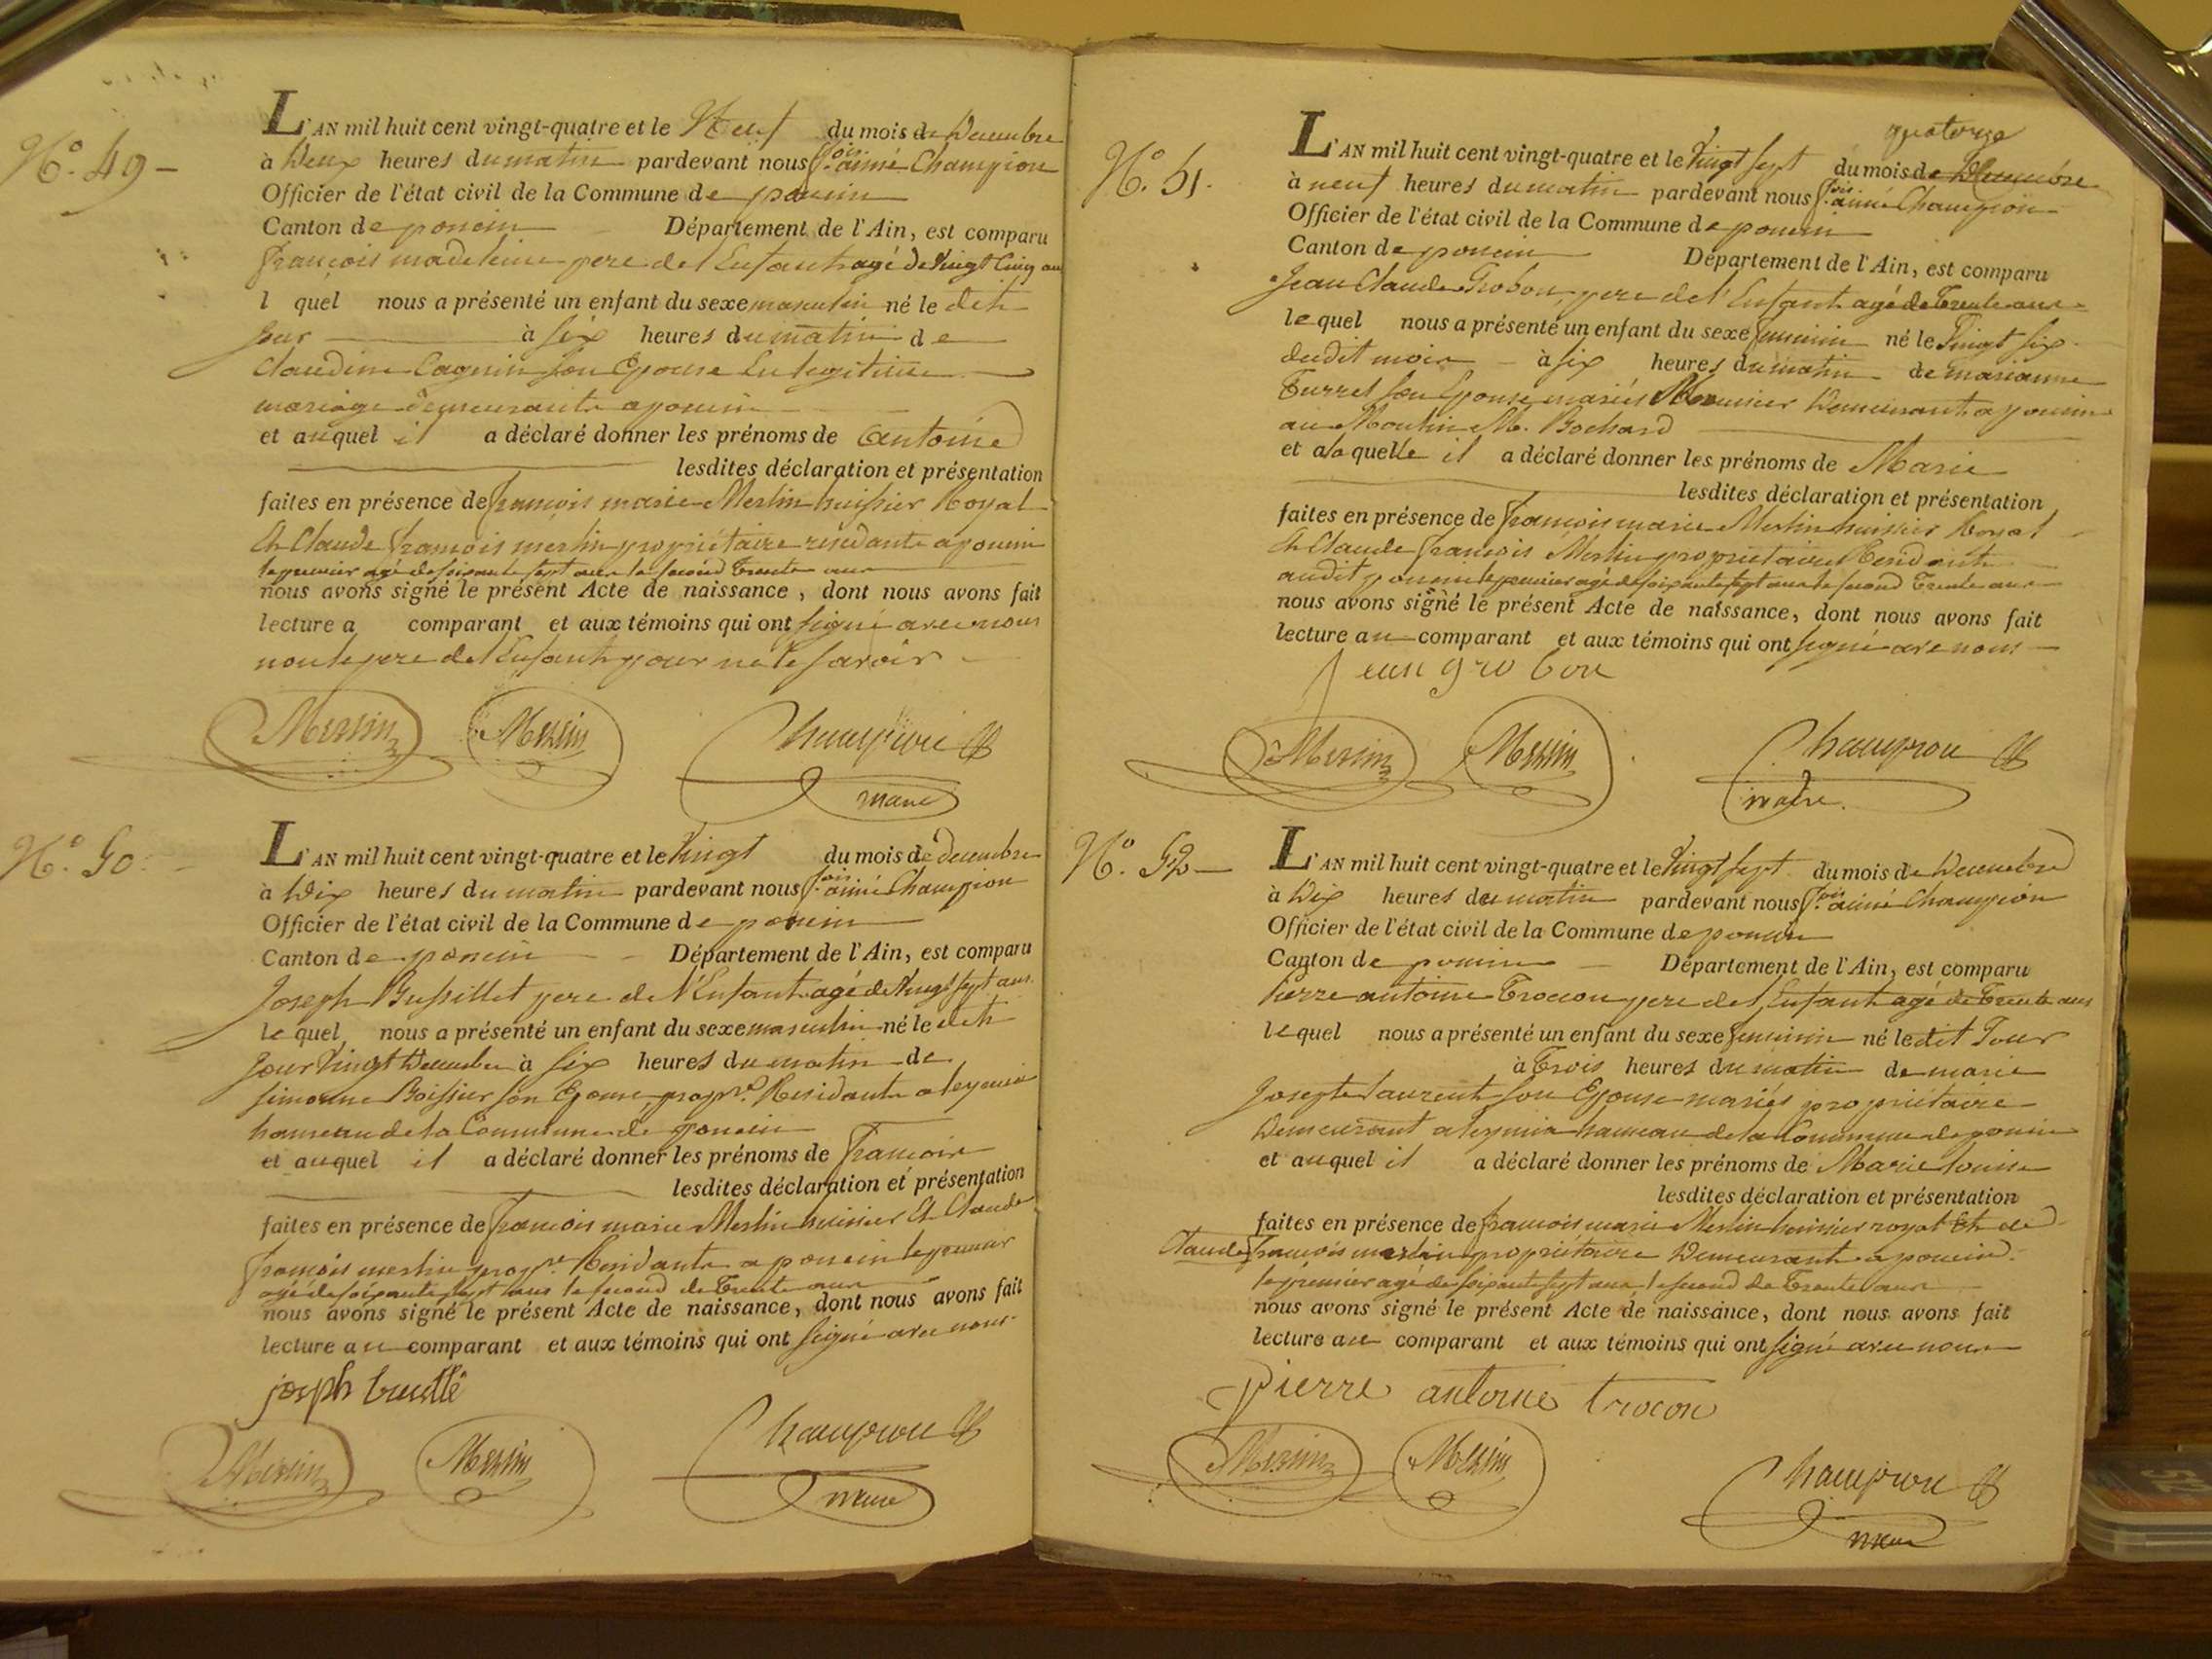 N.° 49 -
L'AN mil huit cent vingt-quatre et le Neuf du mois de Decembre
à Deux heures du matin pardevant nous f.ois aimé Champion
Officier de l'état civil de la Commune de poncin
Canton de poncin Département de l'Ain, est comparu
françois madeleine pere de l'Enfant agé de Vingt Cinq ans
l quel nous a présenté un enfant du sexe masculin né le dit
jour à six heures du matin de
Claudine Cagnin son Epouse En legitime
mariage demeurants a poncin
et auquel il a déclaré donner les prénoms de Antoine
lesdites déclaration et présentation
faites en présence de françois marie Merlin huissier Royal
Et Claude françois merlin propriétaire residants a poncin
le premier agé de soixante sept ans le second trente ans
nous avons signé le présent Acte de naissance, dont nous avons fait
lecture a comparant et aux témoins qui ont signé avec nous
non le pere de l'Enfant pour ne le savoir
Merlin Merlin Champion
maire
N.° 50.
L'AN mil huit cent vingt-quatre et le Vingt du mois de decembre
à Dix heures du matin pardevant nous f.ois aimé Champion
Officier de l'état civil de la Commune de poncin
Canton de poncin Département de l'Ain, est comparu
Joseph Bussillet pere de l'Enfant agé de Vingt sept ans
le quel nous a présenté un enfant du sexe masculin né le dit
Jour Vingt Decembre à six heures du matin de
simonne Boissier son Epouse, propre. Residants a leymia
hameau de la Commune de poncin
et auquel il a déclaré donner les prénoms de françois
lesdites déclaration et présentation
faites en présence de françois marie Merlin huissier Et Claude
françois merlin propre. Residants a poncin le premier
agé de soixante sept ans le second de trente ans
nous avons signé le présent Acte de naissance, dont nous avons fait
lecture au comparant et aux témoins qui ont signé avec nous
joseph
Merlin Merlin Champion
maire
N.° 51.
quatorze
L'AN mil huit cent vingt-quatre et le Vingt sept du mois de Decembre
à neuf heures du matin pardevant nous f.ois aimé Champion
Officier de l'état civil de la Commune de poncin
Canton de poncin Département de l'Ain, est comparu
Jean Claude Grobon pere de l'Enfant agé de Trente ans
lequel nous a présenté un enfant du sexe feminin né le Vingt six
dudit mois à six heures du matin de marianne
Turrel son Epouse mariés Meunier Demeurant a poncin
au Moulin M. Bochard
et a la quelle il a déclaré donner les prénoms de Marie
lesdites déclaration et présentation
faites en présence de françois marie Merlin huissier Royal
Et Claude françois Merlin propriétaire Residants
audit poncin le premier agé de soixante sept ans le second Trente ans
nous avons signé le présent Acte de naissance, dont nous avons fait
lecture au comparant et aux témoins qui ont signé avec nous
Jean grobon
Merlin Merlin Champion
maire.
N.° 52
L'AN mil huit cent vingt-quatre et le Vingt sept du mois de Decembre
à Dix heures du matin pardevant nous f.ois aimé Champion
Officier de l'état civil de la Commune de poncin
Canton de poncin Département de l'Ain, est comparu
Pierre antoine Trocon pere de l'Enfant agé de Trente ans
lequel nous a présenté un enfant du sexe feminin né le dit Jour
à Trois heures du matin de marie
Josephte laurent son Epouse mariés propriétaire
Demeurant a leymia hameau de la Commune de poncin
et auquel il a déclaré donner les prénoms de Marie louise
lesdites déclaration et présentation
faites en présence de françois marie Merlin huissier royal Et de
Claude françois merlin propriétaire Demeurant a poncin
le premier agé de soixante sept ans, le second de Trente ans
nous avons signé le présent Acte de naissance, dont nous avons fait
lecture au comparant et aux témoins qui ont signé avec nous
pierre antoine trocon
Merlin Merlin Champion
maire